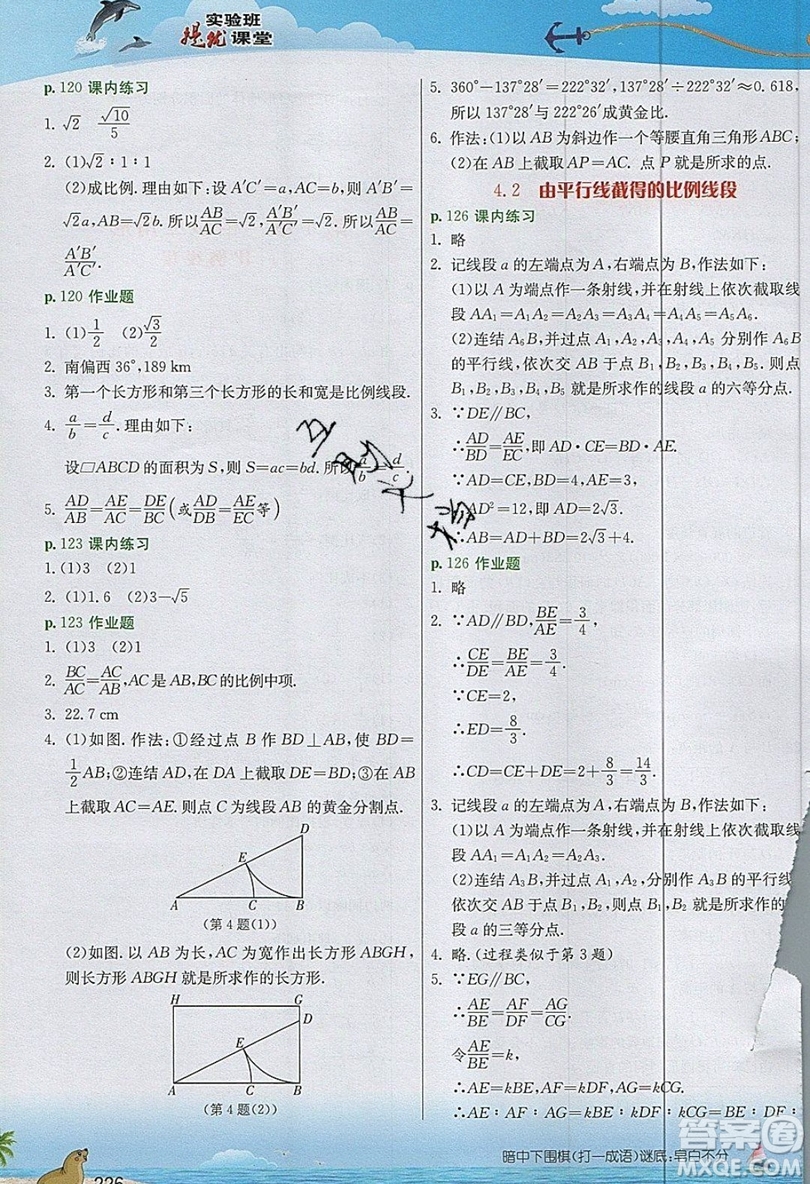 实验班
提优课堂
p.120 课内练习
1. √2　√10/5
2. (1)√2∶1∶1
(2)成比例.理由如下:设A′C′=a,AC=
√2a,AB=√2b.所以AB/AC=A′B′/A′C′.所以AB/AC=
A′B′/A′C′.
p.120 作业题
1. (1)1/2　(2)√3/2
2. 南偏西36°,189 km
3. 第一个长方形和第三个长方形的长和宽是比例线段.
4. a/b=d/c.理由如下:
设▱ABCD的面积为S,则S=ac=bd.所以a/b=d/c.
5. AD/AB=AE/AC=DE/BC(或AD/DB=AE/EC等)
p.123 课内练习
1. (1)3　(2)1
2. (1)1.6　(2)3-√5
p.123 作业题
1. (1)3　(2)1
2. BC/AC=AC/AB,AC是AB,BC的比例中项.
3. 22.7 cm
4. (1)如图.作法:①经过点B作BD⊥AB,使BD=
1/2AB;②连结AD,在DA上截取DE=DB;③在AB
上截取AC=AE.则点C为线段AB的黄金分割点.
D
E
A C B
(第4题(1))
(2)如图.以AB为长,AC为宽作出长方形ABGH,
则长方形ABGH就是所求作的长方形.
H G
D
E
A C B
(第4题(2))
226
5. 360°-137°28′=222°32′,137°28′÷222°32′≈0.618,
所以137°28′与222°26′成黄金比.
6. 作法:(1)以AB为斜边作一个等腰直角三角形ABC;
(2)在AB上截取AP=AC.点P就是所求的点.
4.2　由平行线截得的比例线段
p.126 课内练习
1. 略
2. 记线段a的左端点为A,右端点为B,作法:
(1)以A为端点作一条射线,并在射线上依次截取线
段AA₁=A₁A₂=A₂A₃=A₃A₄=A₄A₅=A₅A₆.
(2)连结A₆B,并过点A₁,A₂,A₃,A₄,A₅分别作A₆B
的平行线,依次交AB于点B₁,B₂,B₃,B₄,B₅.则点
B₁,B₂,B₃,B₄,B₅就是所求作的线段a的六等分点.
3. ∵DE∥BC,
∴AD/BD=AE/EC,即AD·EC=BD·AE.
∵AD=CE,AE=3,BD=4,
∴AD²=12,即AD=2√3.
∴AB=AD+BD=2√3+4.
p.126 作业题
1. 略
2. ∵AD∥BD,BE/AE=3/4,
∴CE/DE=BE/AE=3/4.
∵CE=2,
∴ED=8/3.
∴CD=CE+DE=2+8/3=14/3.
3. 记线段a的左端点为A,右端点为B,作法:
(1)以A为端点作一条射线,并在射线上依次截取线
段AA₁=A₁A₂=A₂A₃.
(2)连结A₃B,并过点A₁,A₂,分别作A₃B的平行
线,依次交AB于点B₁,B₂.则点B₁,B₂就是所求作的线
段a的三等分点.
4. 略.(过程类似于第3题)
5. ∵EG∥BC,
∴AE/BE=AF/DF=AG/CG.
令AE/BE=k,
∴AE=kBE,AF=kDF,AG=kCG.
∴AE∶AF∶AG=kBE∶kDF∶kCG=BE∶DF∶
暗中下围棋(打一成语)谜底:皂白不分
答案圈
MXQE.COM